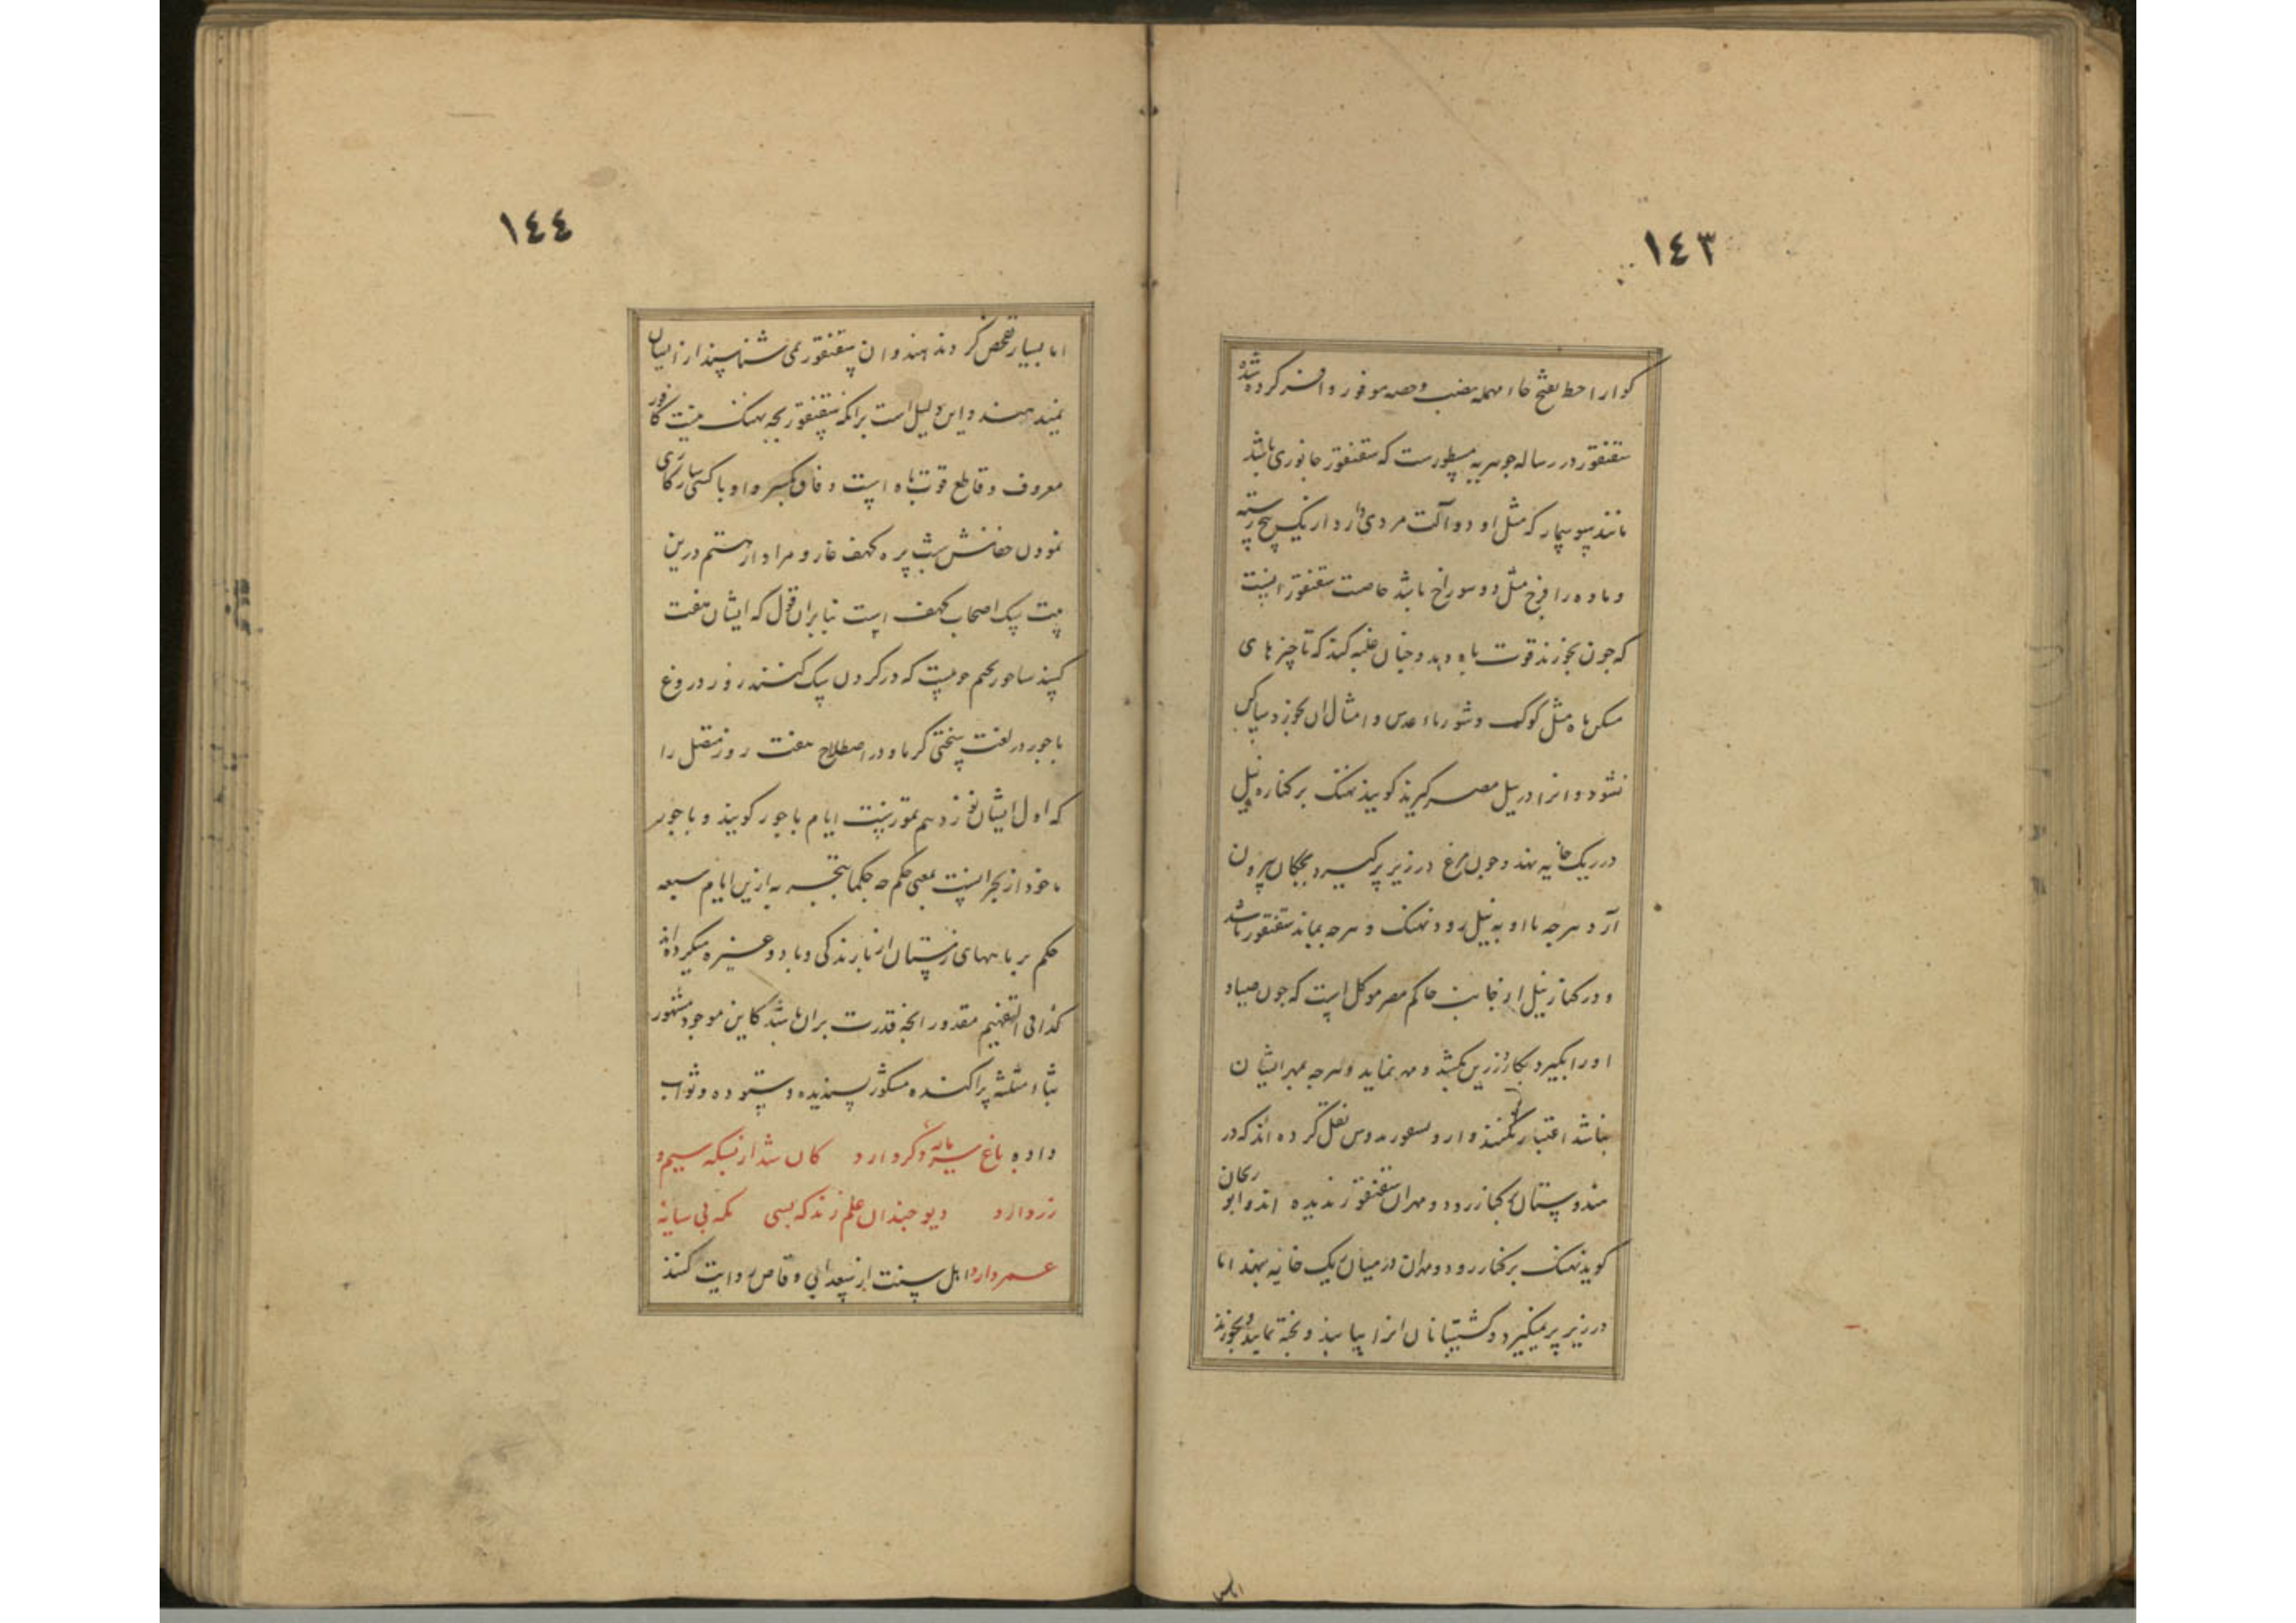 ١٤٣
کوارا حظ بفتح حاء مهمله نصیب و حصه موفور وافر کرده شده
سقنقور در رساله جوهریه مسطورست که سقنقور جانوری باشد
مانند سوسمار که مثل او دو آلت مردی دارد از یک بیخ رسته
و ماده را فرج مثل دو سوراخ باشد خاصیت سقنقور اینست
که چون بخورند قوت باه دهد و چنان غلبه کند که تا چیزهای
مسکن باه مثل کوک و شورباء عدس و امثال آن نخورد ساکن
نشود و انرا در نیل مصر گیرند گویند نهنگ بر کناره نیل
در ریک خایه نهد و چون مرغ در زیر پر گیرد و بچکان بیرون
آرد هرچه با او به نیل رود نهنگ و هرچه بماند سقنقور باشد
و در کنار نیل از جانب حاکم مصر موکل است که چون صیاد
او را بگیرد بکارد زرین بکشد و مهر نماید و هرچه بمهر ایشان
نباشد اعتبار نکنند و از نقل کرده اند که در
هندوستان بکنار رود مهران سقنقور ندیده اند و ابو ریحان
گوید نهنگ بر کنار رود مهران در میان ریک خایه نهد اما
در زیر پر نمیگیرد و کشتیبانان انرا بیابند و پخته نمایند و بخورند
اما بسیار
١٤٤
اما بسیار تفحص کردند هندوان سقنقور نمی شناسند از ایشان
بمیدهند و این دلیل است برانکه سقنقور بچه نهنگ نیست کافور
معروف و قاطع قوت باه است وفاق بکسر واو با کسی سازکاری
نمودن خفاش شب پره کهف غار و مراد از هشتم درین
بیت سگ اصحاب کهف است بنابران قول که ایشان هفت
کسند ساجور بجیم چوبیست که در گردن سگ کنند زور دروغ
باجور در لغت سختی گرما و در اصطلاح هفت روز متصل را
که اول ایشان نوزدهم تموزست ایام باجور گویند و باجور
ماخوذ از بحرانست بمعنی حکم چه حکما بتجربه ازین ایام سبعه
حکم بر ماههای زمستان از بارندگی و باد و غیره میکرده اند
کذا فی التفهیم مقدور انچه قدرت بران باشد کاین موجود مشهور
بثاء مثلثه پراکنده مشکور پسندیده و ستوده و ثواب
داده باغ سرمایه دگر دارد کان شد از بسکه سیم و
زر دارد دیو چندان علم زند که بسی تکیه بی سایه
عمر دارد اهل سنت از سعد ابی وقاص روایت کنند